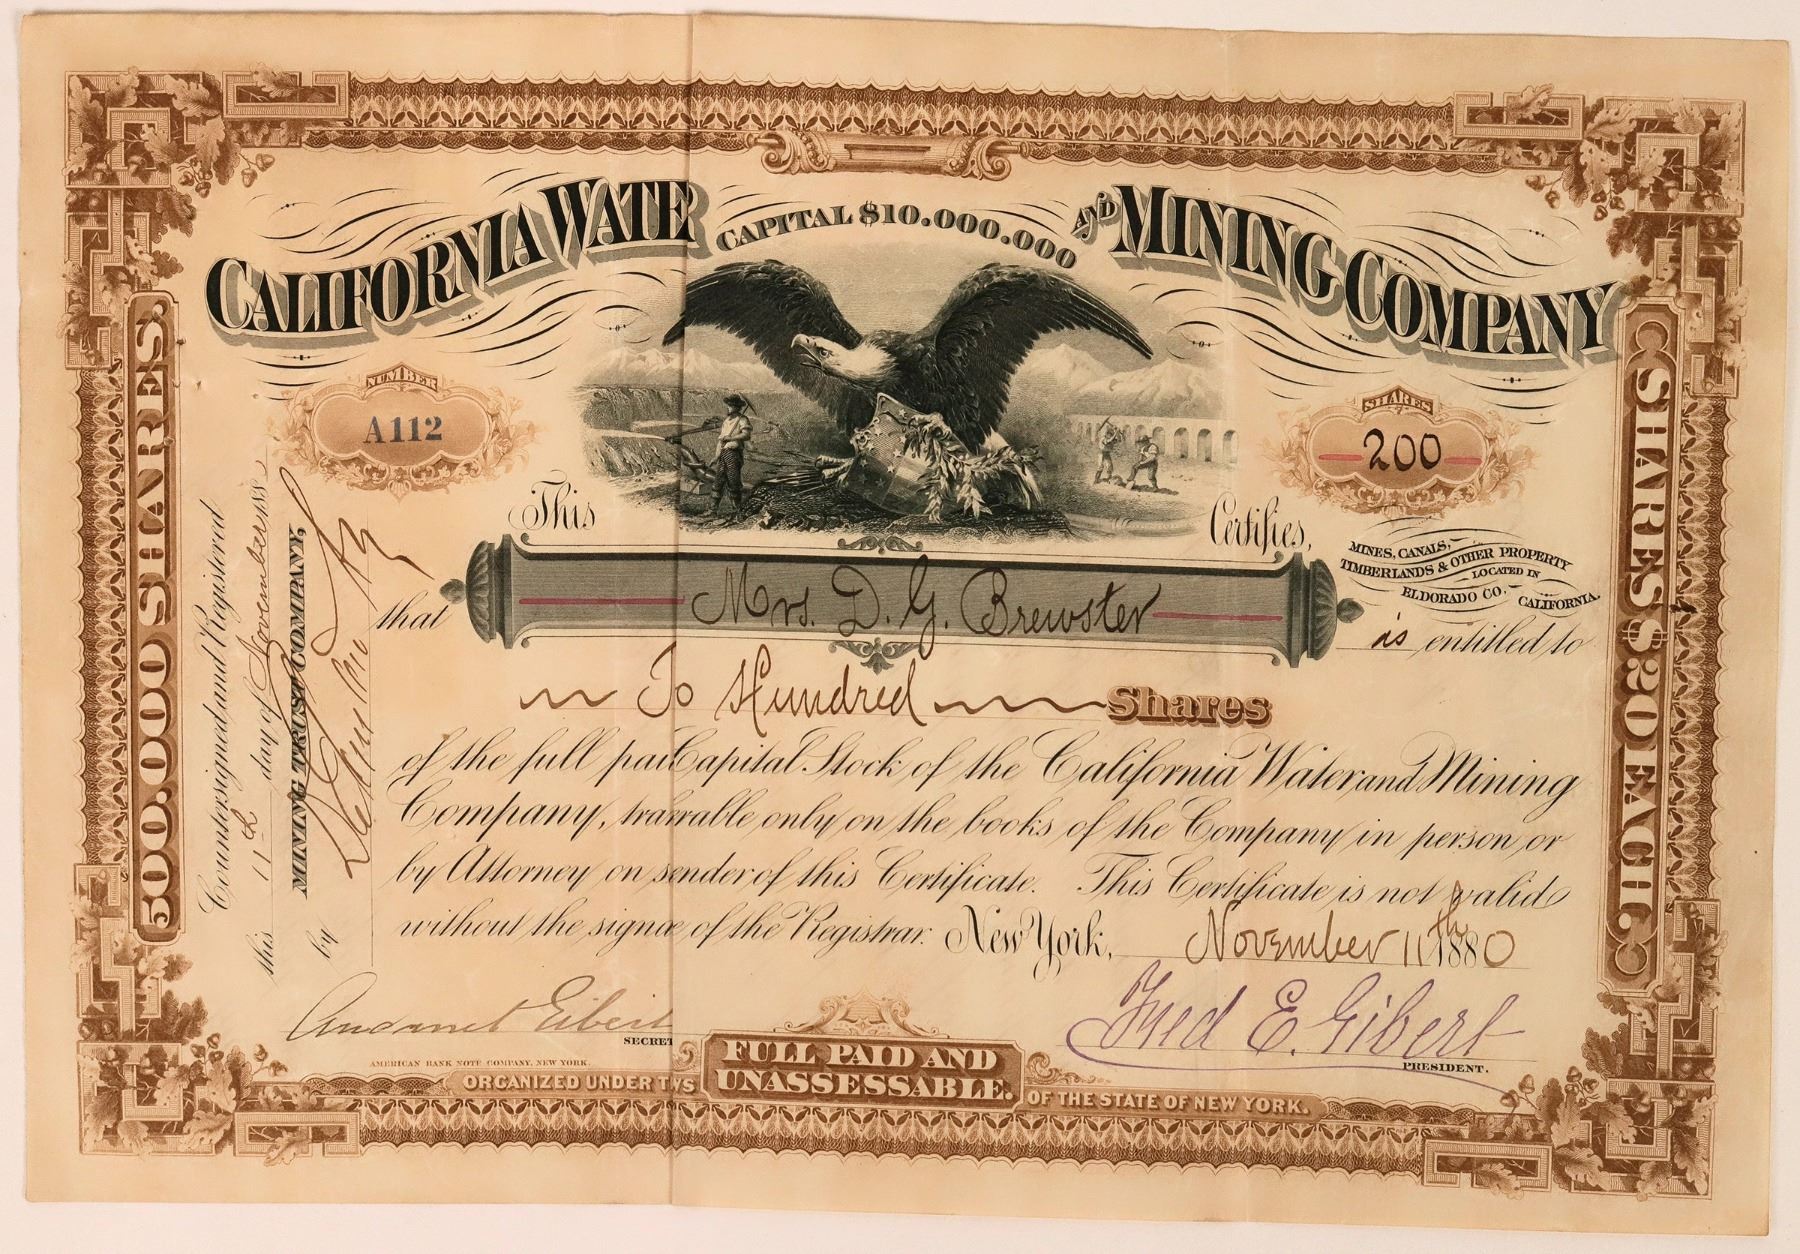 CALIFORNIA WATE
CAPITAL $10.000.000
AND MINING COMPANY
NUMBER
A112
SHARES
200
This
Certifies,
MINES, CANALS,
TIMBERLANDS & OTHER PROPERTY
LOCATED IN
ELDORADO CO. CALIFORNIA.
that Mrs. D. G. Brewster is entitled to
To Hundred Shares
of the full pai Capital Stock of the California Water and Mining
Company, trarrable only on the books of the Company in person or
by Attorney on sender of this Certificate. This Certificate is not valid
without the signœ of the Registrar. New York, November 11th 1880
Fred E. Gibert
SECRET
PRESIDENT.
AMERICAN BANK NOTE COMPANY, NEW YORK.
FULL PAID AND
UNASSESSABLE.
ORGANIZED UNDER T WS
OF THE STATE OF NEW YORK.
500.000 SHARES.
Countersigned and Registered
this 11th day of November 188
MINING TRUST COMPANY,
by
SHARES $20 EACH